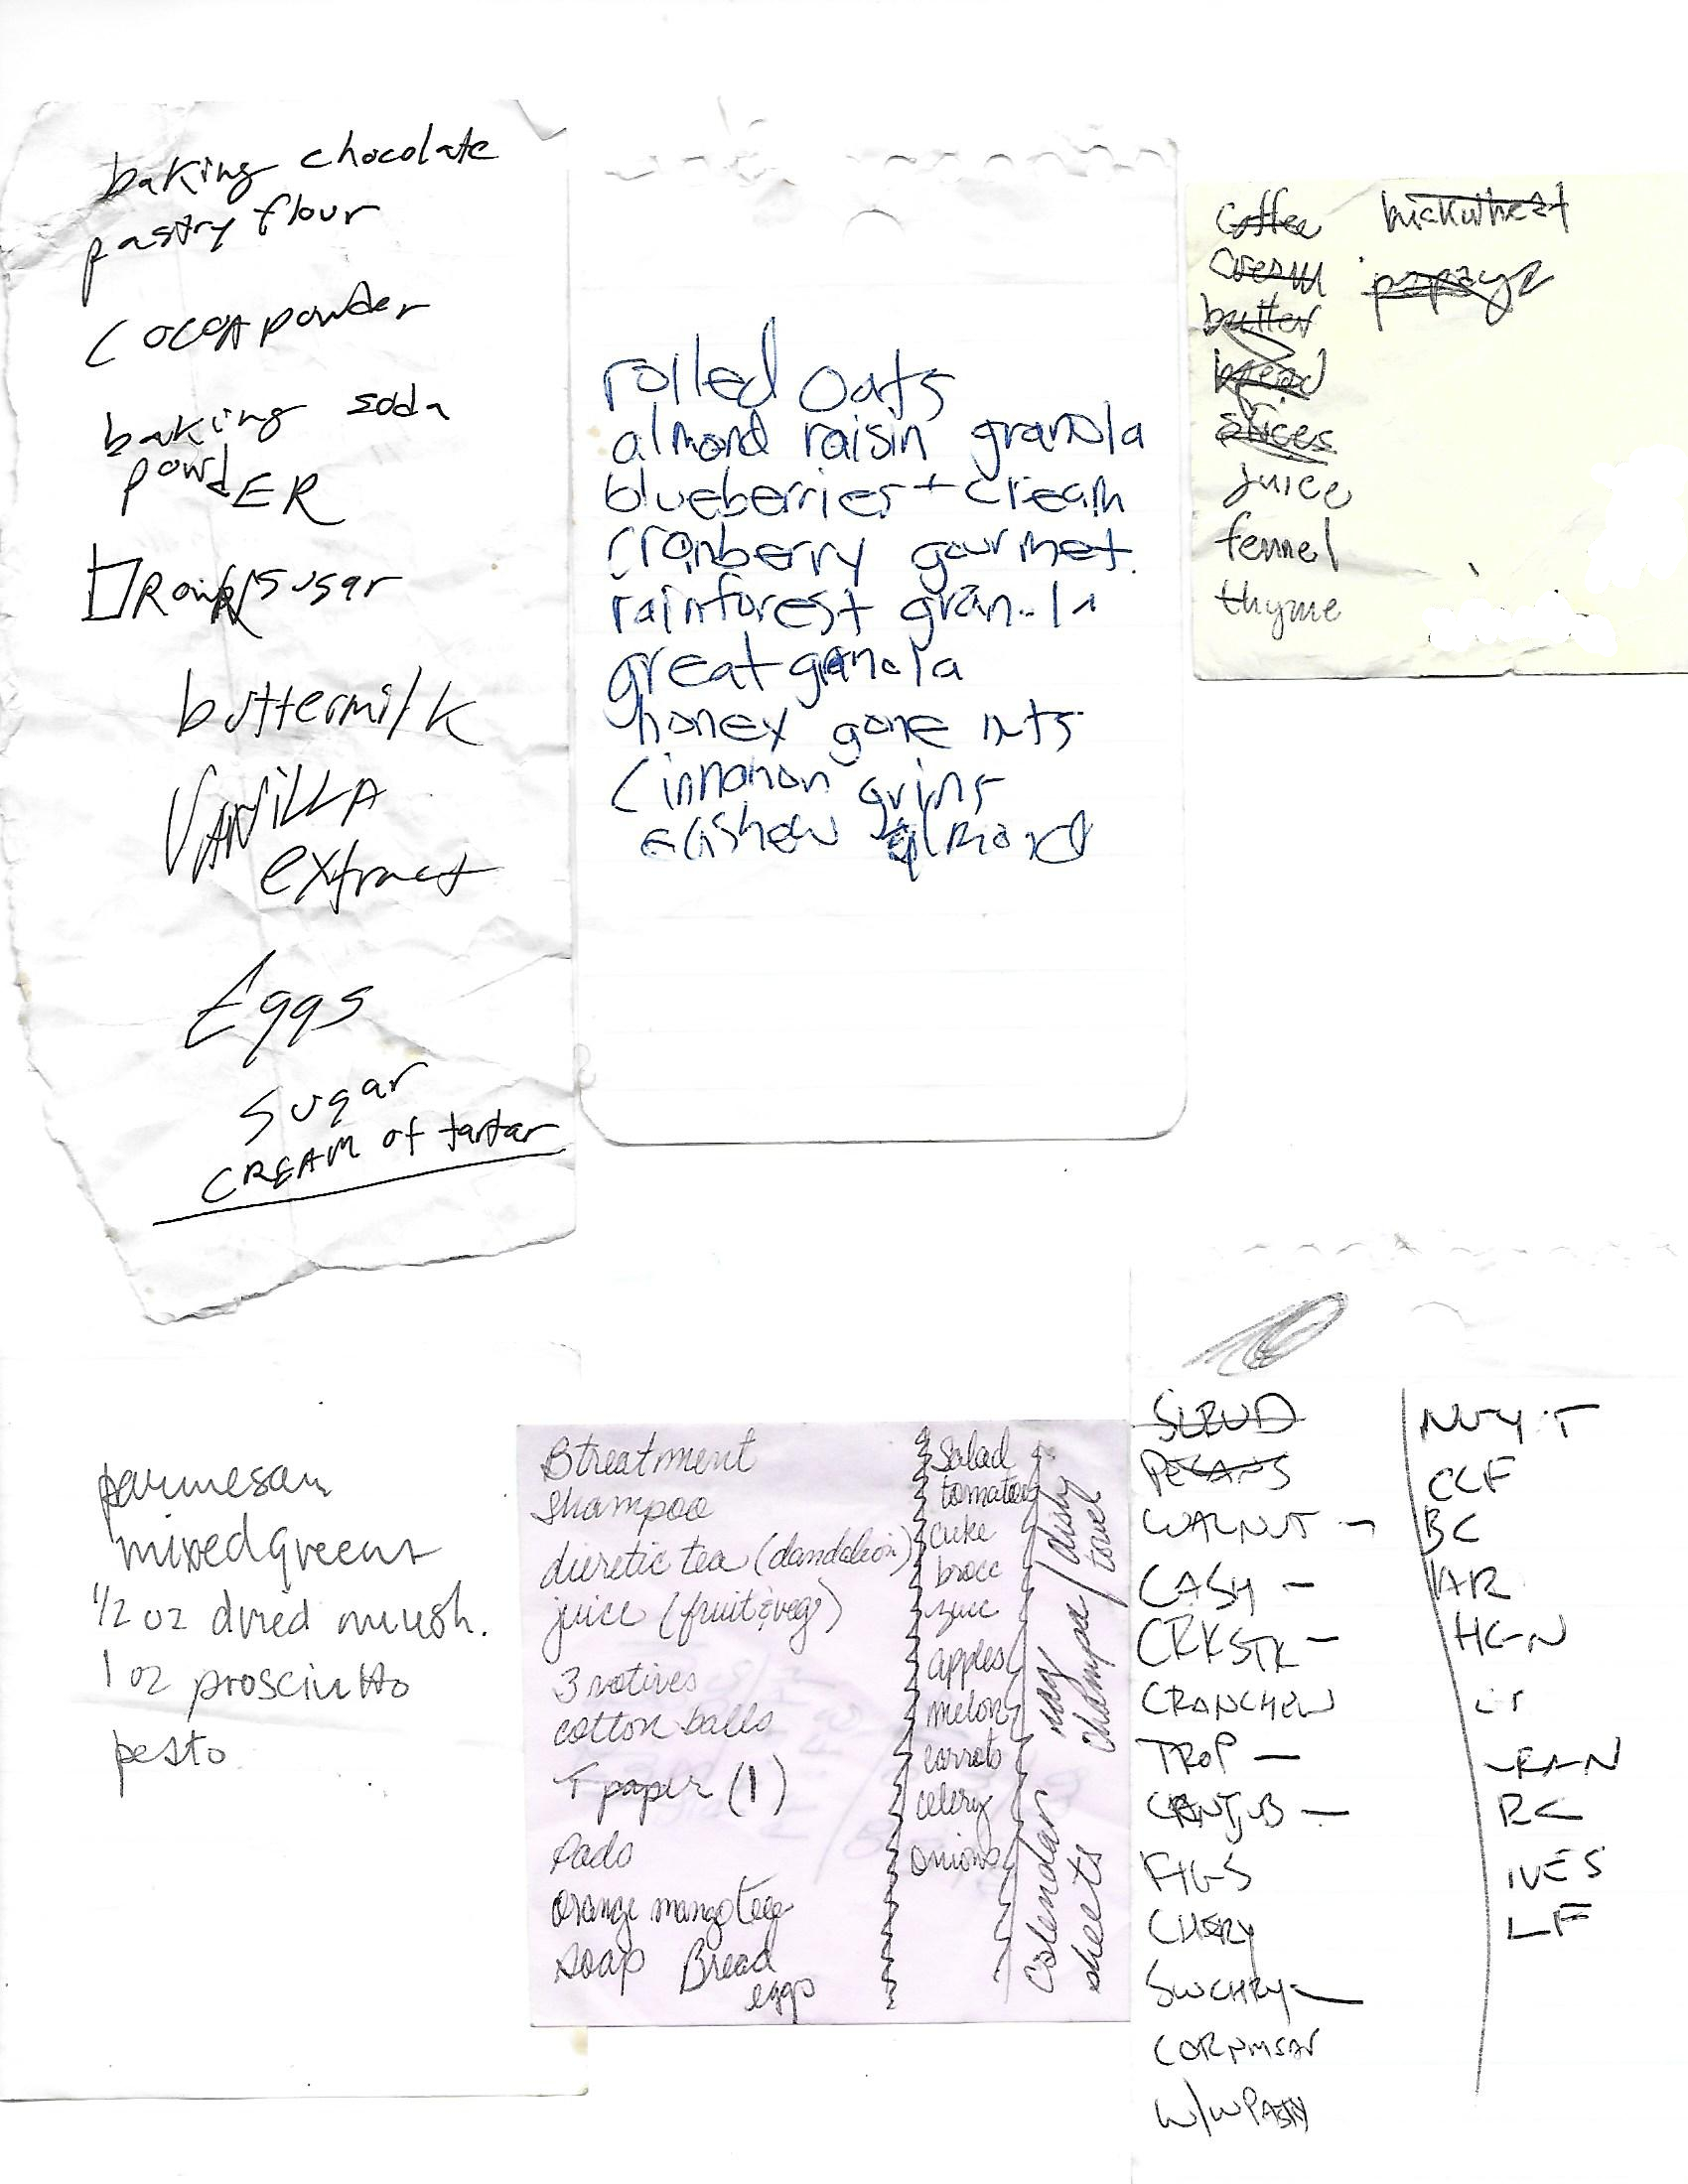 baking chocolate
pastry flour
cocoa powder
baking soda
powdER
sugar
buttermilk
VANillA
extract
Eggs
sugar
CREAM of tartar
rolled oats
almond raisin granola
blueberries + cream
cranberry gourmet
rainforest granola
great granola
honey gone nuts
cinnamon grins
cashew almond
coffee
cream
butter
bread
slices
juice
fennel
thyme
buckwheat
papaya
parmesan
mixed greens
1/2 oz dried mush.
1 oz prosciutto
pesto
B treatment
shampoo
dieretic tea (dandelion)
juice (fruit & veg)
3 votives
cotton balls
T paper (1)
Pads
orange mango tea
soap Bread
eggs
Salad
tomatoes
cuke
brocc
zucc
apples
melon
carrots
celery
onions
calendar nag champa / dish
sheets towel
PECANS
WALNUT -
CASH -
CRKSTK -
CRANCHEW
TROP -
FIGS
CHERY
SWCHRY -
W/W PASTRY
CCF
BC
AR
HGN
RC
IVES
LF